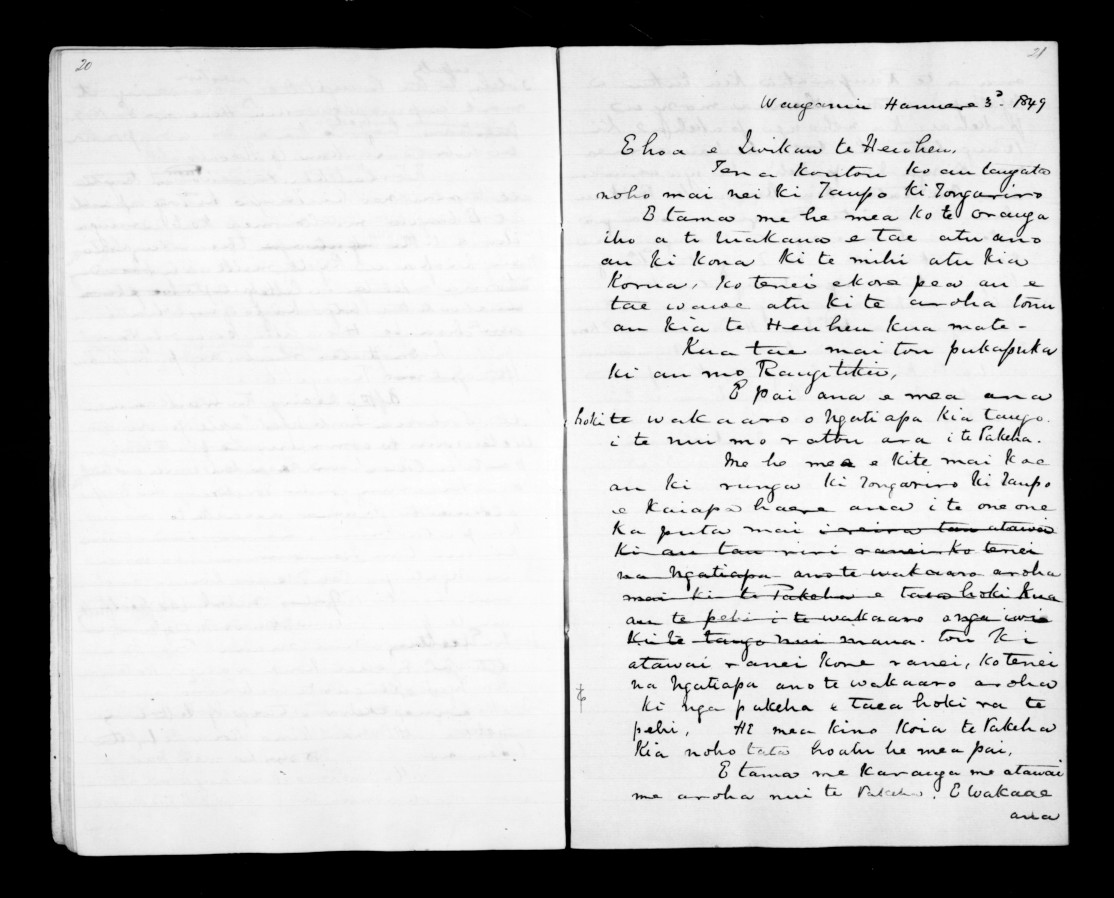 20
21
Wanganui Hanuere 3d. 1849
E hoa e Iwikau te Heuheu,
Tena koutou ko au tangata
noho mai nei ki Taupo ki Tongariro
E tama me he mea ko te oranga
iho a te Makawa e tae atu ano
au ki kona ki te mihi atu kia
Korua, ko tenei ekore pea au e
tae wawe atu ki te aroha tonu
au kia te Heuheu kua mate -
Kua tae mai tou pukapuka
ki au mo Rangitikei,
E pai ana e mea ana
hoki te wakaaro o Ngatiapa kia tango
i te nui mo ratou ara i te Pakeha.
Me he mea e kite mai koe
au ki runga ki Tongariro ki Taupo
e kaiapa haere ana i te oneone
ka puta mai i reira tau atawai
ki au tau riri ranei ko tenei
na Ngatiapa ano te wakaaro aroha
mai ki te Pakeha e taea hoki kua
au te pehi i te wakaaro o nga iwi
ki te tango nui mana. tou ki
atawai ranei kore ranei, ko tenei
na Ngatiapa ano te wakaaro aroha
ki nga pakeha e taea hoki ra te
pehi, He mea kino koia te Pakeha
kia noho tata hoatu he mea pai,
E tama me karanga me atawai
me aroha nui te Pakeha. E wakaae
ana